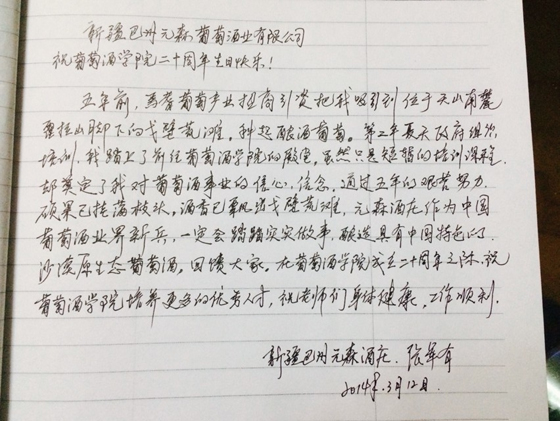 新疆巴州元森葡萄酒业有限公司
祝葡萄酒学院二十周年生日快乐！
五年前，焉耆葡萄产业招商引资把我吸引到位于天山南麓
霍拉山脚下的戈壁荒滩，种起酿酒葡萄。第二年夏天政府组织
培训，我踏上了前往葡萄酒学院的殿堂，虽然只是短暂的培训课程，
却奠定了我对葡萄酒事业的信心、信念，通过五年的艰苦努力
硕果已挂满枝头，酒香已飘出戈壁荒滩，元森酒庄作为中国
葡萄酒业界新兵，一定会踏踏实实做事，酿造具有中国特色的
沙漠原生态葡萄酒，回馈大家。在葡萄酒学院成立二十周年之际，祝
葡萄酒学院培养更多的优秀人才，祝老师们身体健康，工作顺利。
新疆巴州元森酒庄 张 有
2014年.3月12日.